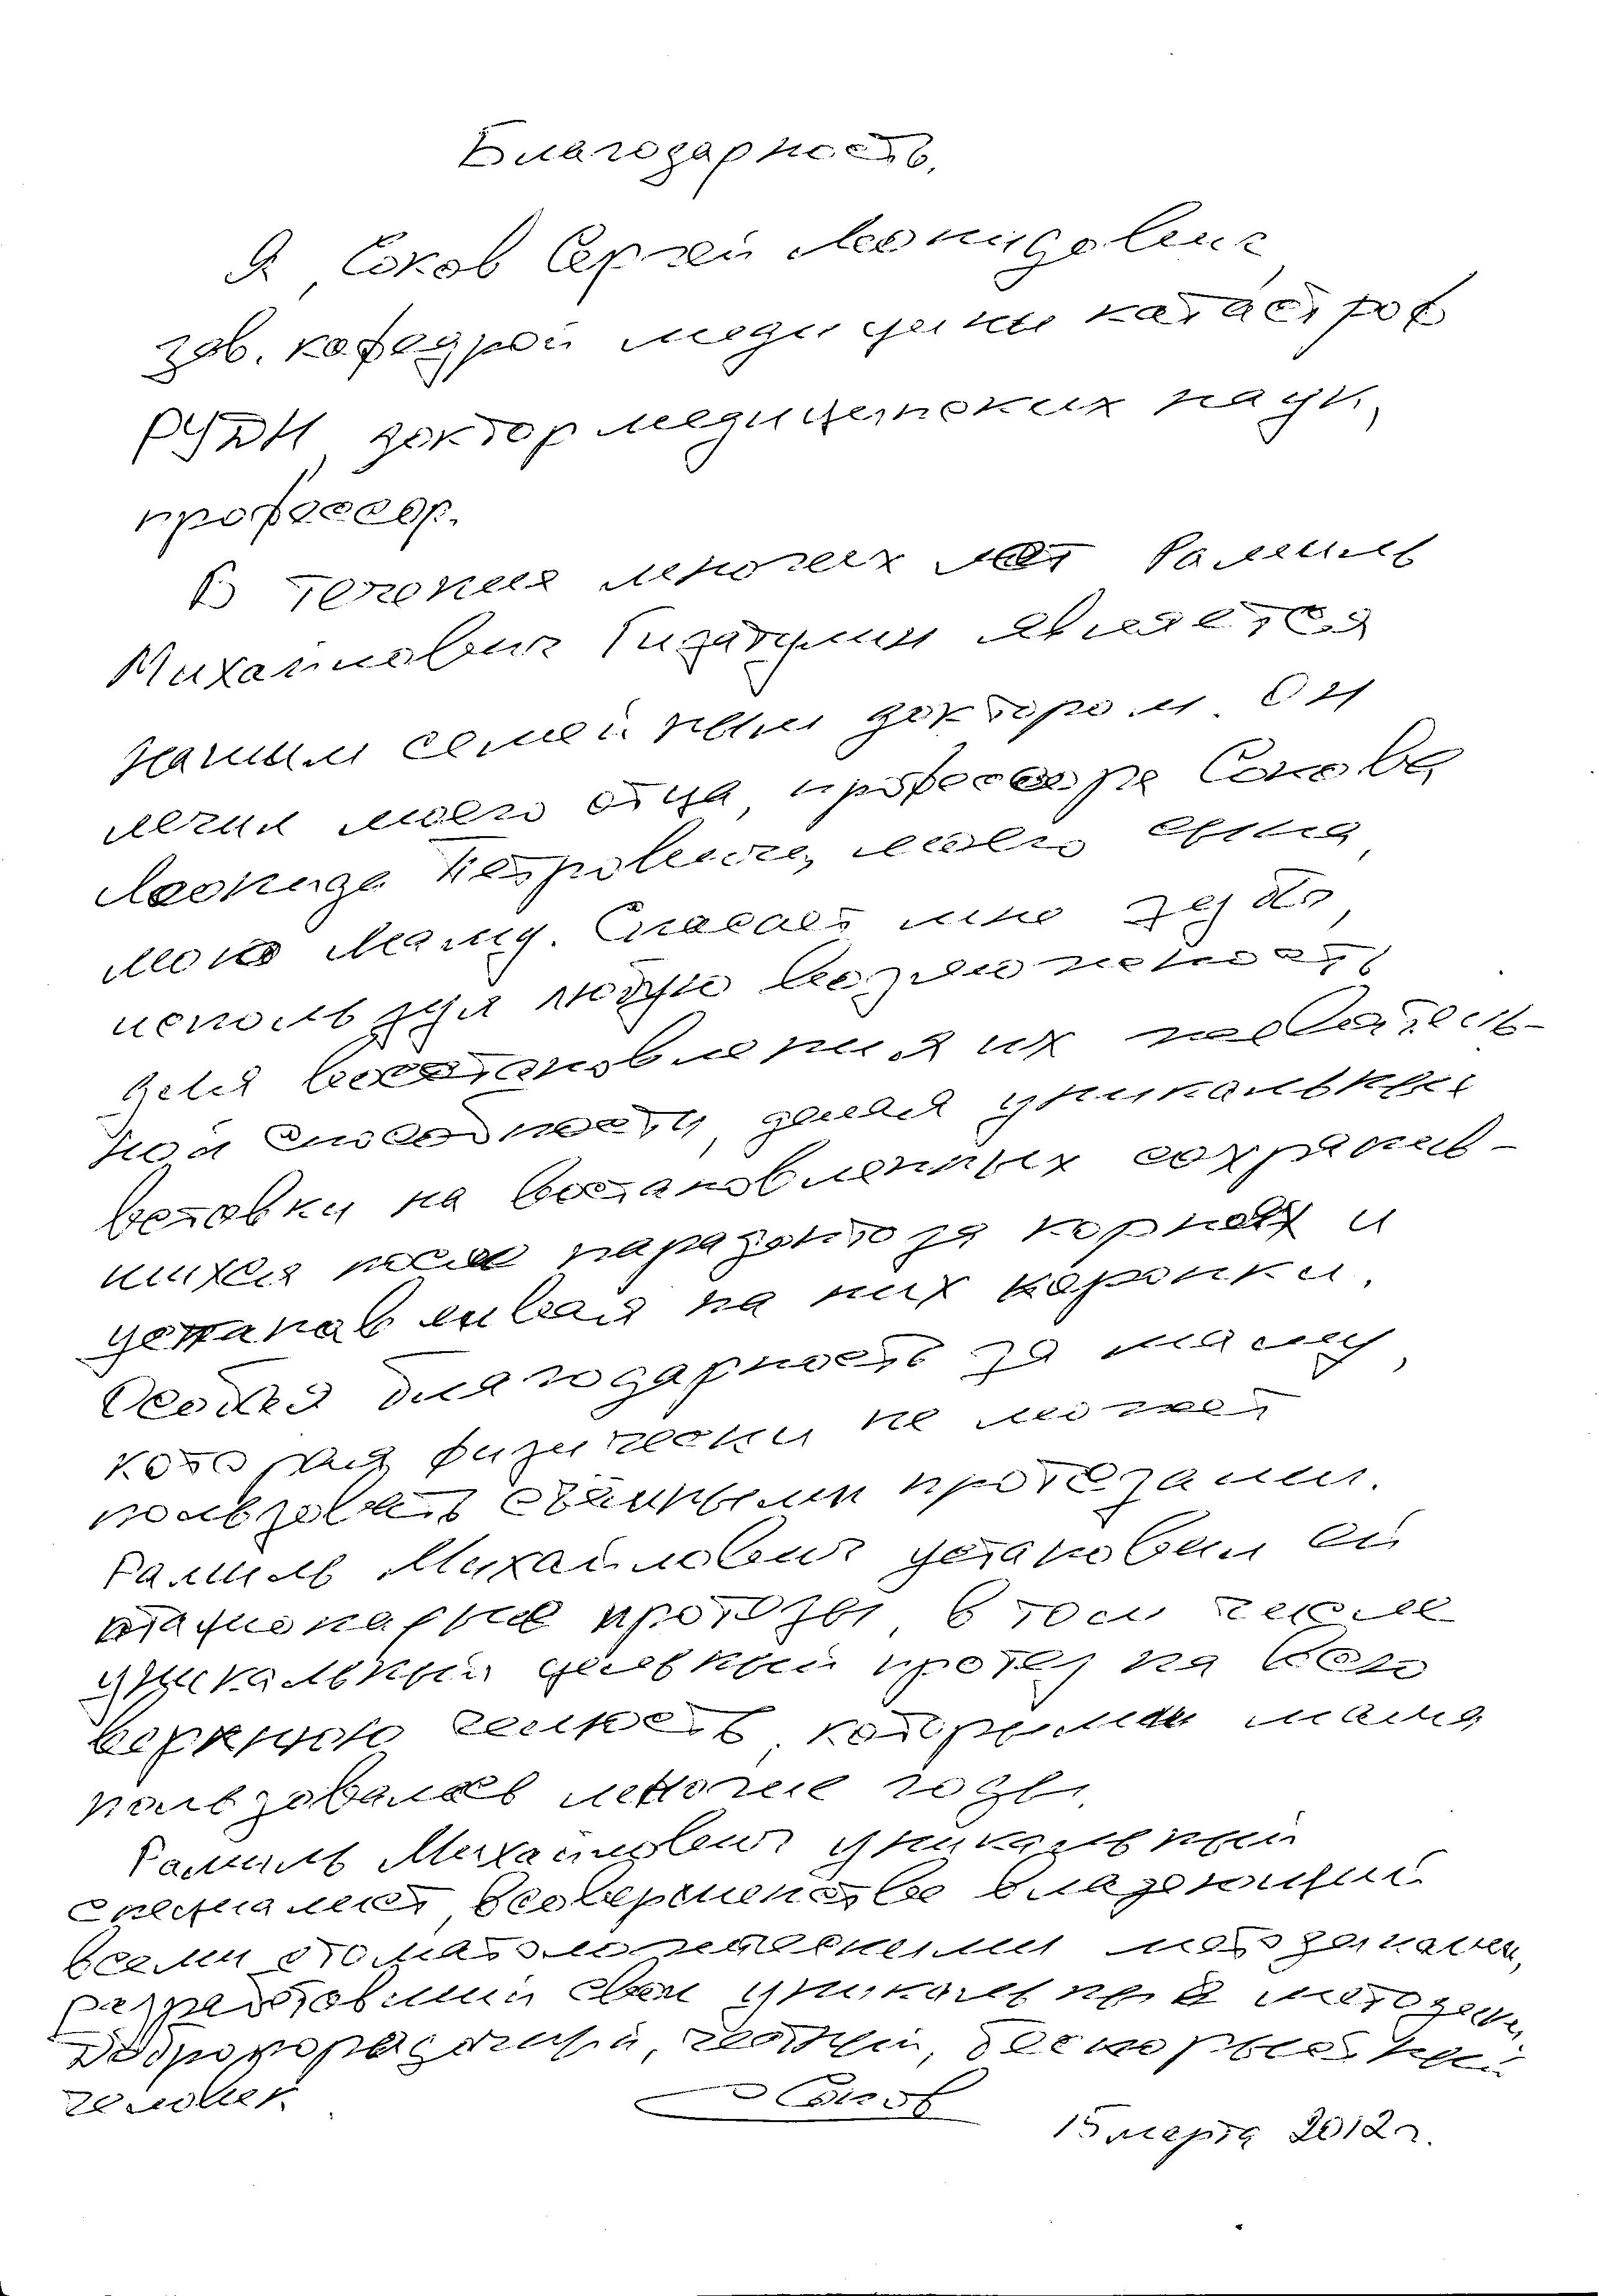 Благодарность.
Я, Соков Сергей Леонидович
зав. кафедрой медицины катастроф
РУДН, доктор медицинских наук,
профессор.
В течение многих лет Рамиль
Михайлович Гизатуллин является
нашим семейным доктором. Он
лечил моего отца, профессора Сокова
Леонида Петровича, моего сына,
мою маму. Спасает мне зубы,
используя любую возможность
для восстановления их жеватель-
ной способности, делая уникальные
вставки на восстановленных сохранив-
шихся после пародонтоза корнях и
устанавливая на них коронки.
Особая благодарность за маму,
которая физически не может
пользоваться съёмными протезами.
Рамиль Михайлович установил ей
стационарные протезы, в том числе
уникальный цельный протез на всю
верхнюю челюсть, которыми мама
пользовалась многие годы.
Рамиль Михайлович уникальный
специалист, в совершенстве владеющий
всеми стоматологическими методиками,
разработавший свои уникальные методики,
Добропорядочный, честный, бескорыстный
человек.
Соков
15 марта 2012г.